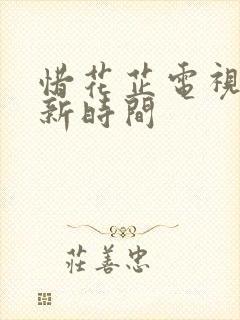 惜花芷電視
新時間
莊善忠